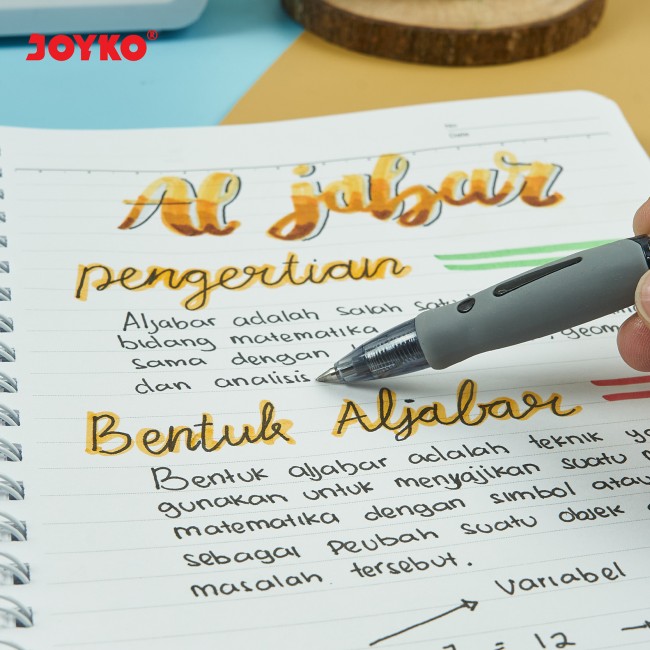 JOYKO®
No
Date
Al jabar
pengertian
Aljabar adalah salah satu
bidang matematika
sama dengan , geom
dan analisis
Bentuk Aljabar
Bentuk aljabar adalah teknik
gunakan untuk menyajikan suatu
matematika dengan simbol atau
sebagai Peubah suatu objek
masalah tersebut.
Variabel
= 12